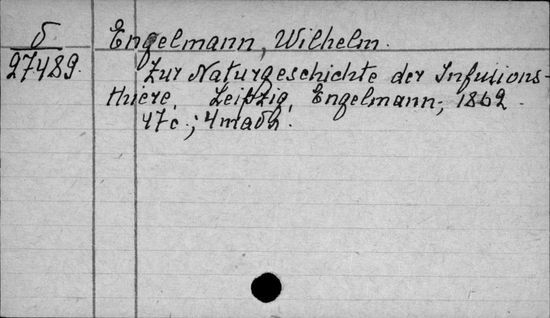 б Engelmann, Wilhelm.
27489. Zur Naturgeschichte der Infusions-
thiere. Leipzig, Engelmann, 1862.
47c.;